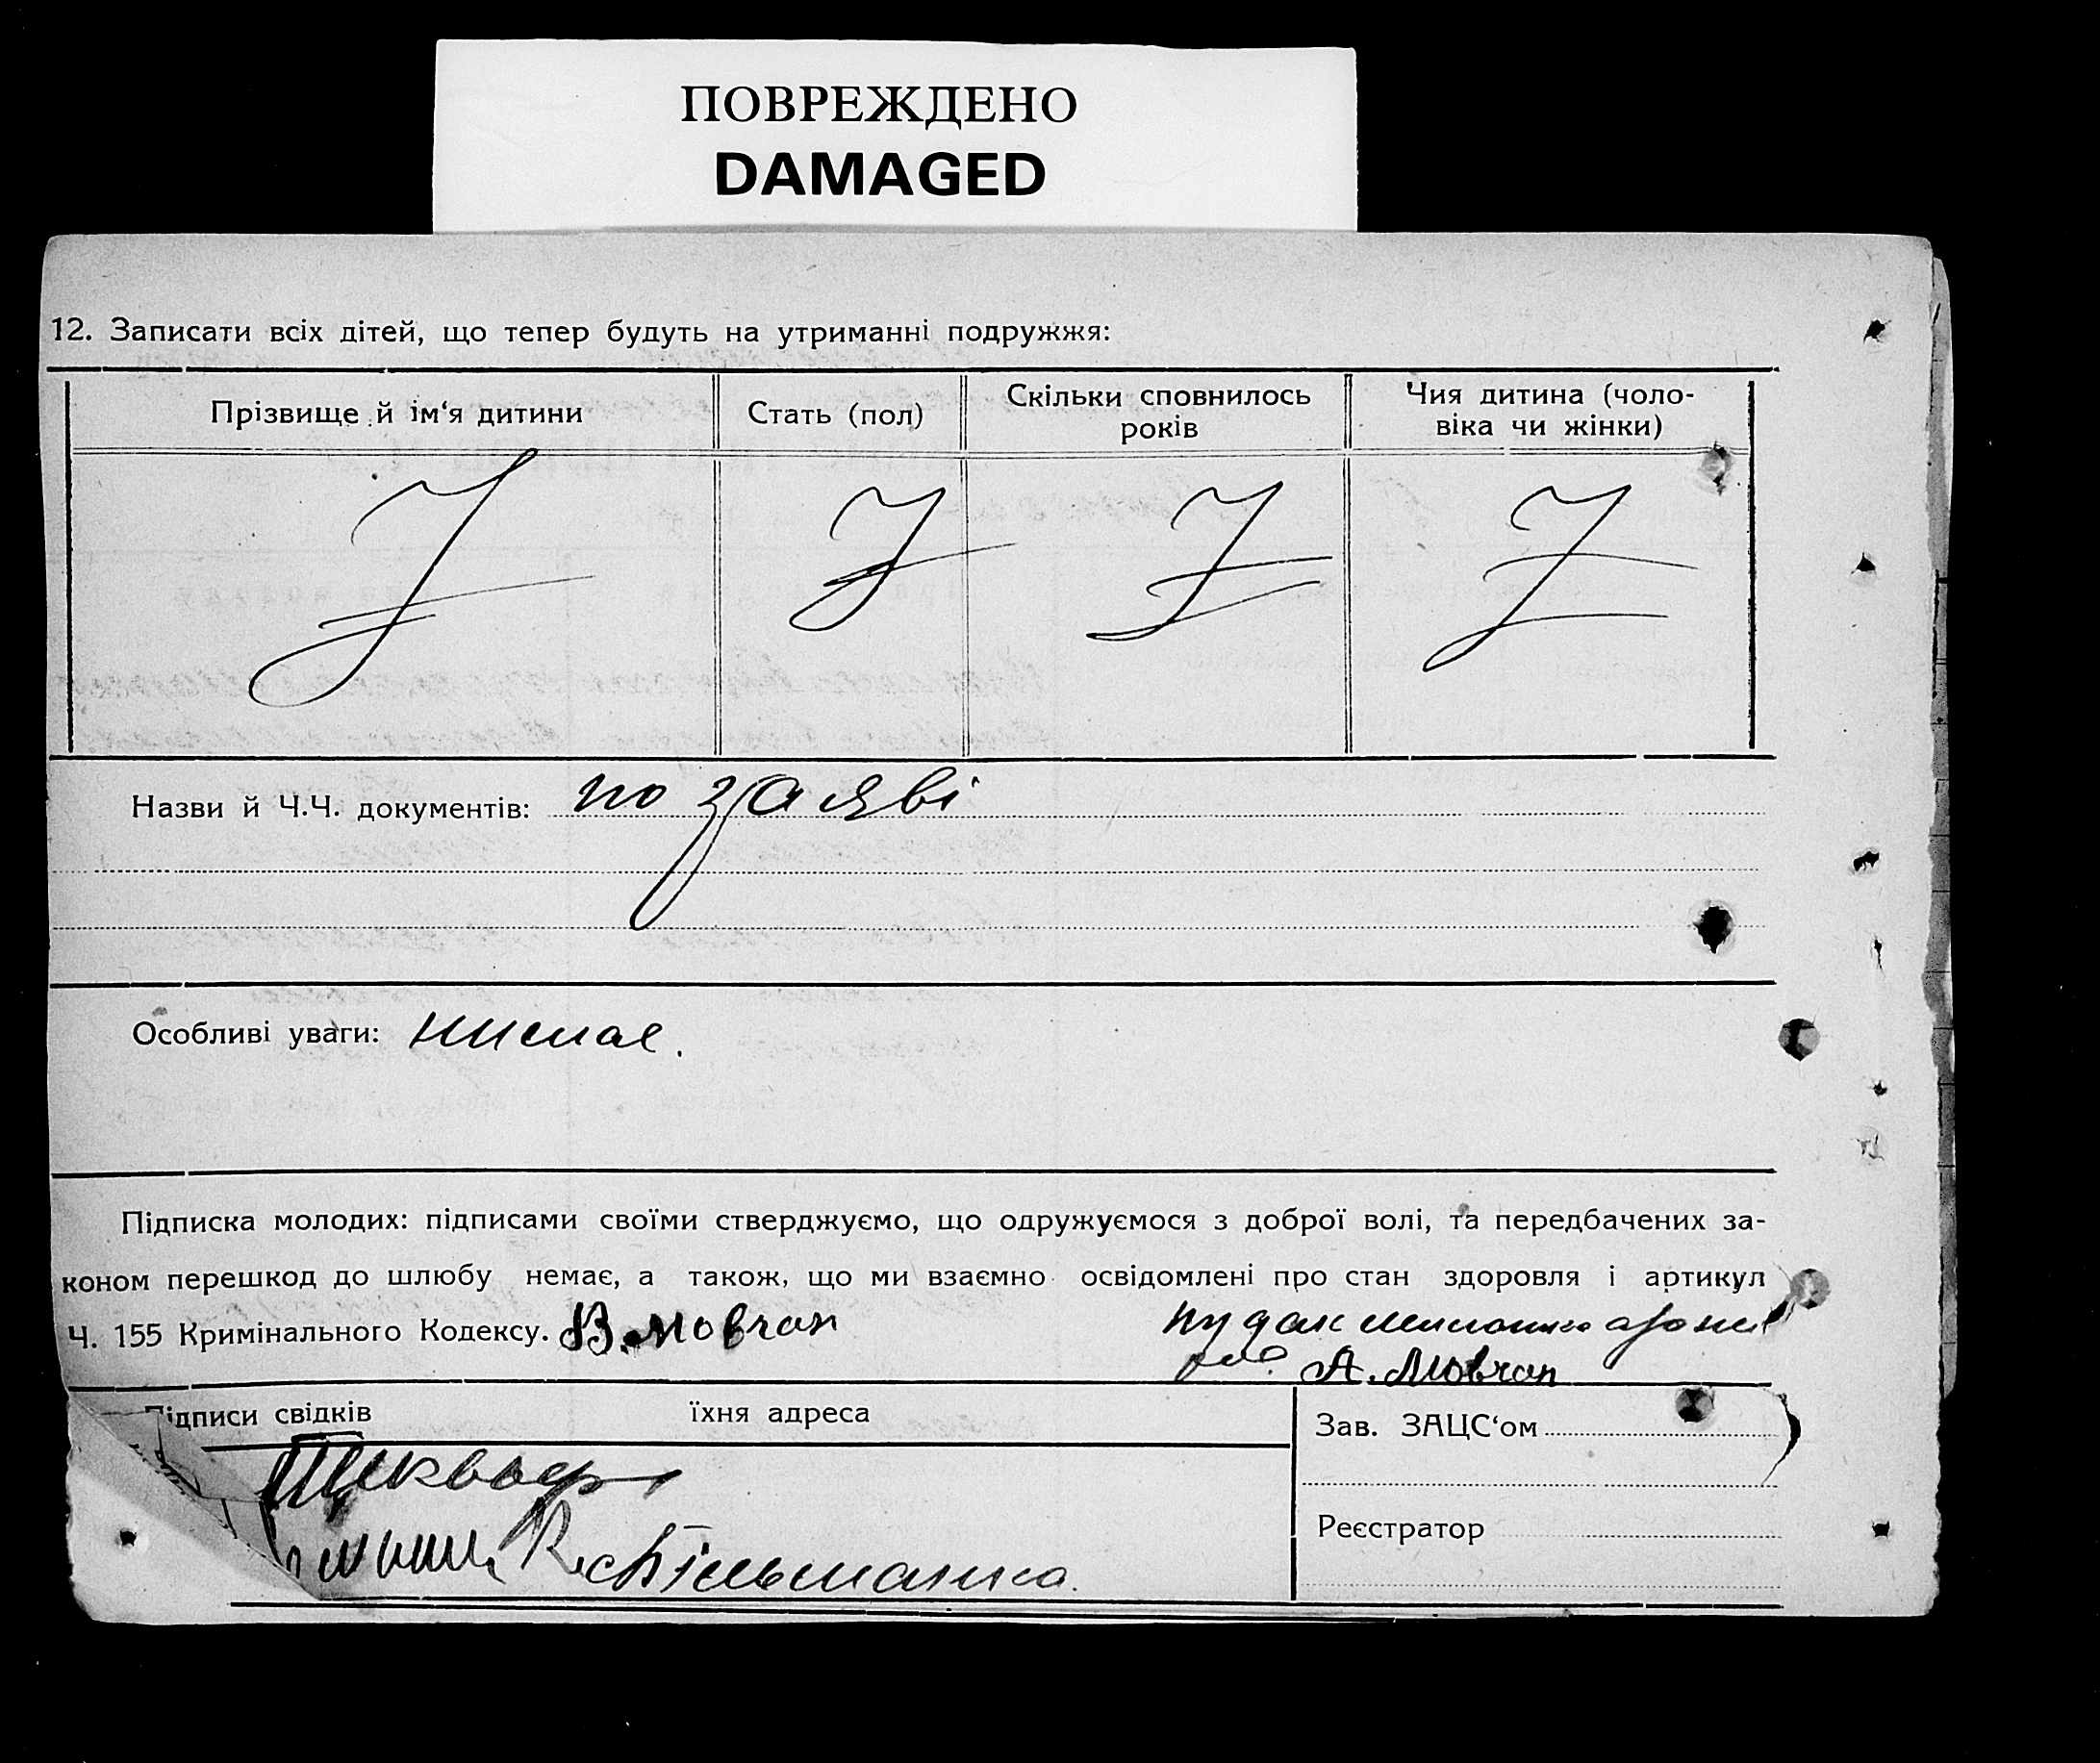 ПОВРЕЖДЕНО
DAMAGED
12. Записати всіх дітей, що тепер будуть на утриманні подружжя:
Прізвище й ім‘я дитини
Стать (пол)
Скільки сповнилось років
Чия дитина (чоло-
віка чи жінки)
Назви й Ч.Ч. документів: по заяві
Особливі уваги: немає.
Підписка молодих: підписами своїми стверджуємо, що одружуємося з доброї волі, та передбачених за-
коном перешкод до шлюбу немає, а також, що ми взаємно освідомлені про стан здоровля і артикул
Ч. 155 Кримінального Кодексу. В. Мовчан
А. Мовчан
Підписи свідків
їхня адреса
Зав. ЗАЦС‘ом
Реєстратор